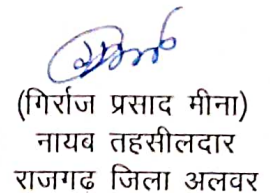 (गिर्राज प्रसाद मीना)
नायब तहसीलदार
राजगढ़ जिला अलवर